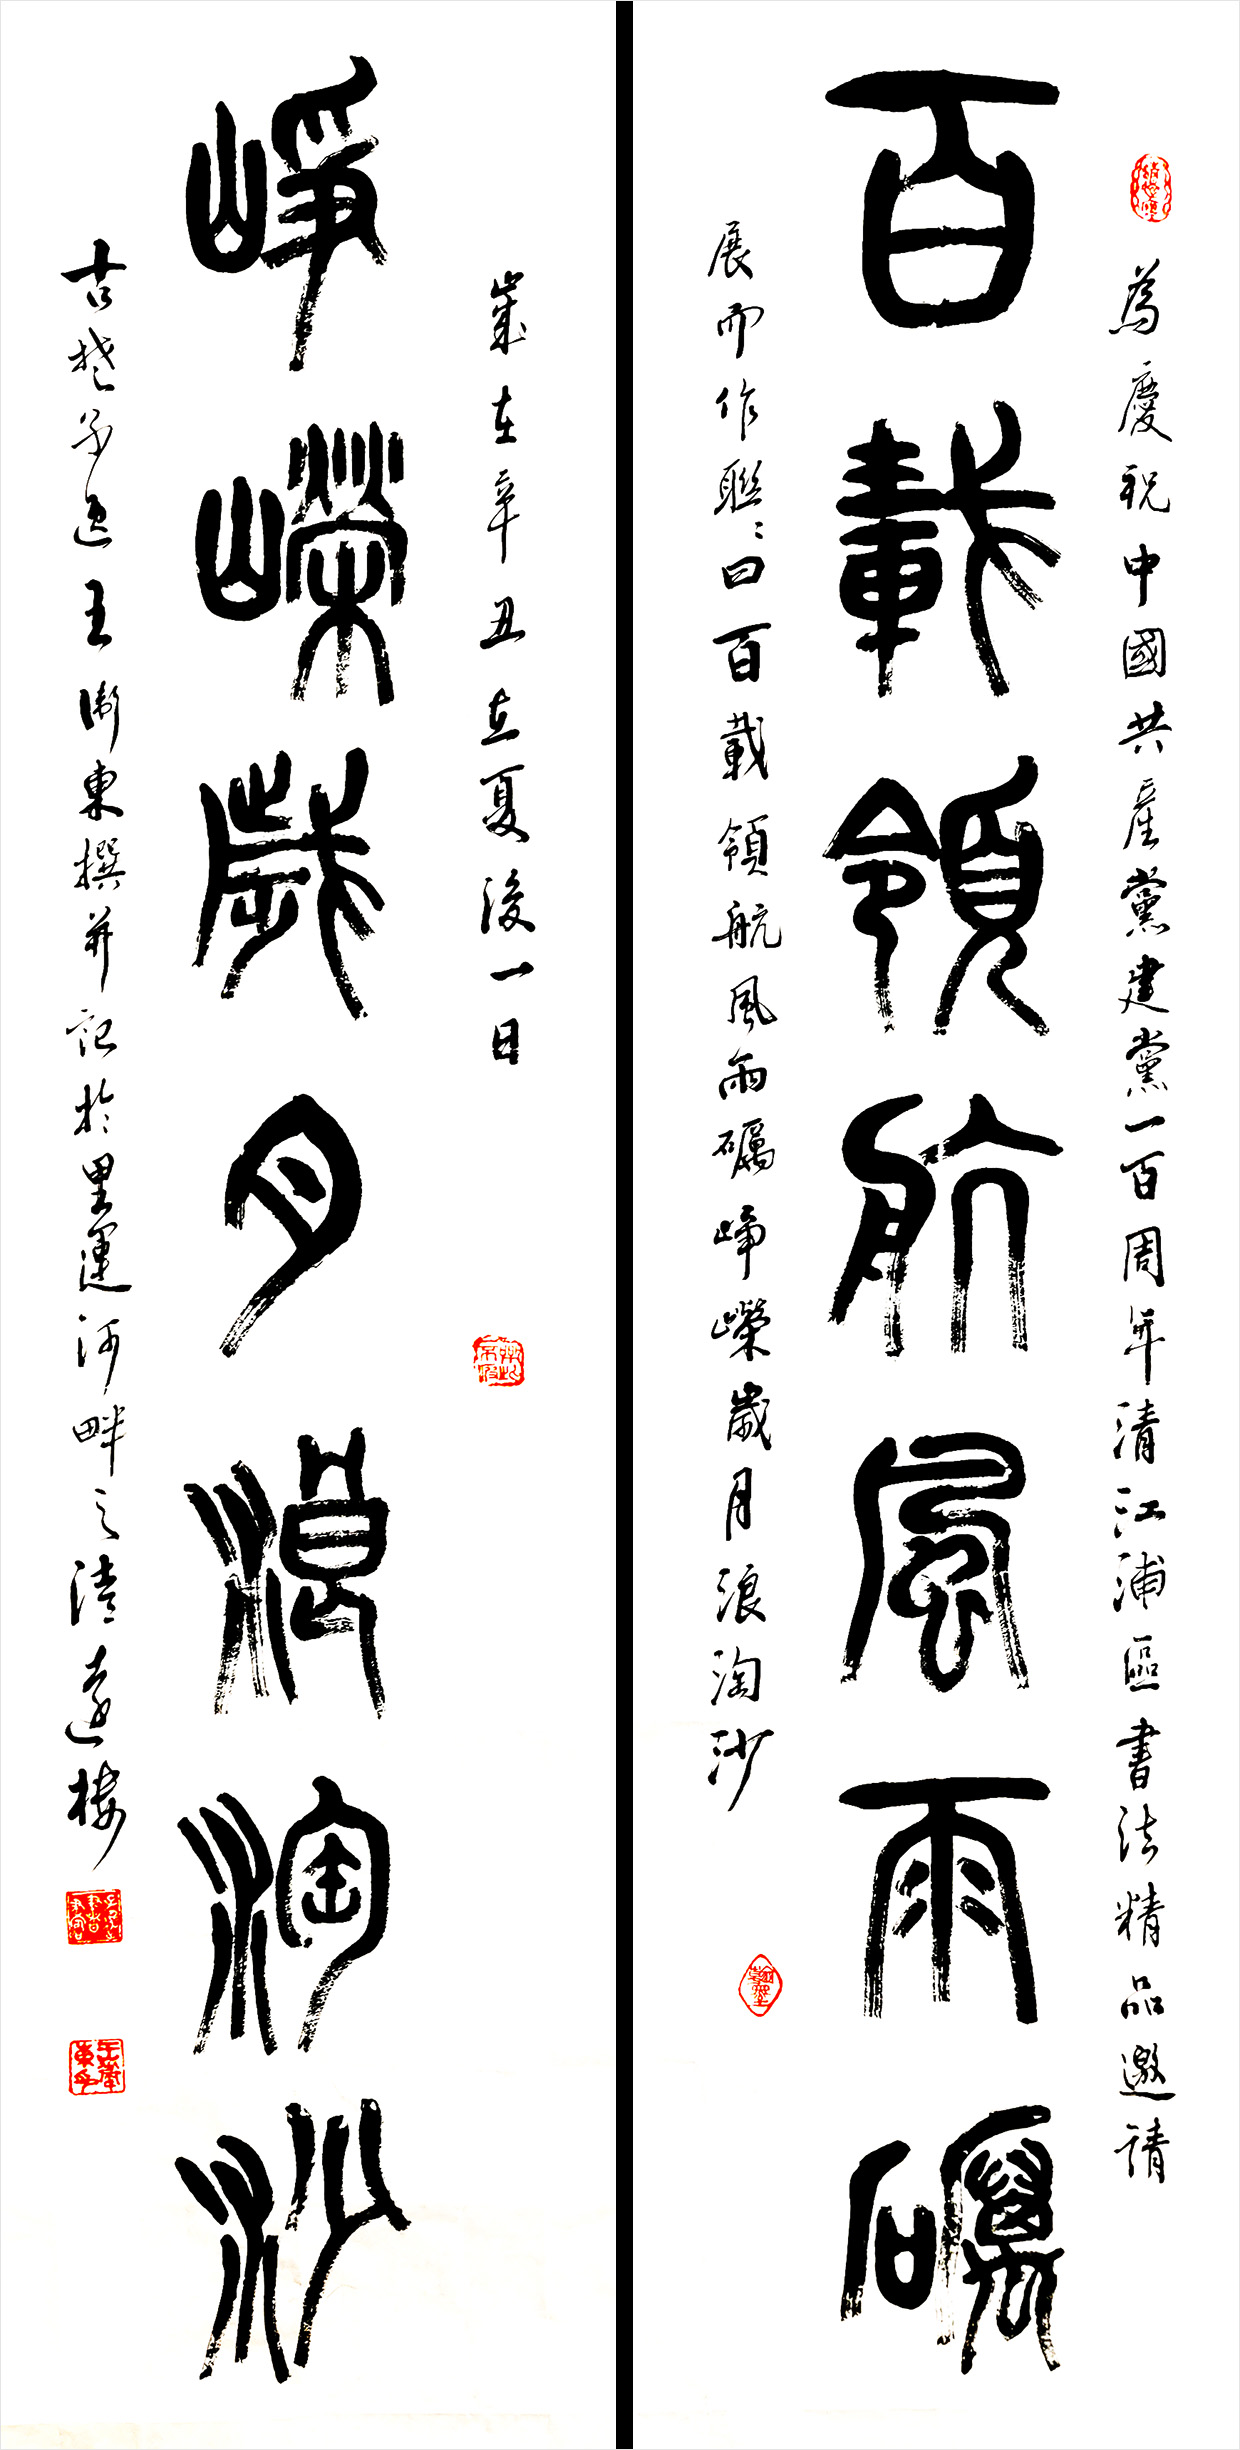 為慶祝中國共產黨建黨一百周年清江浦區書法精品邀請
百載領航風雨礪
展而作聯〻曰百載領航風雨礪崢嶸歲月浪淘沙
歲在辛丑立夏後一日
崢嶸歲月浪淘沙
古楚子退王衛東撰并記於里運河畔之清遠樓